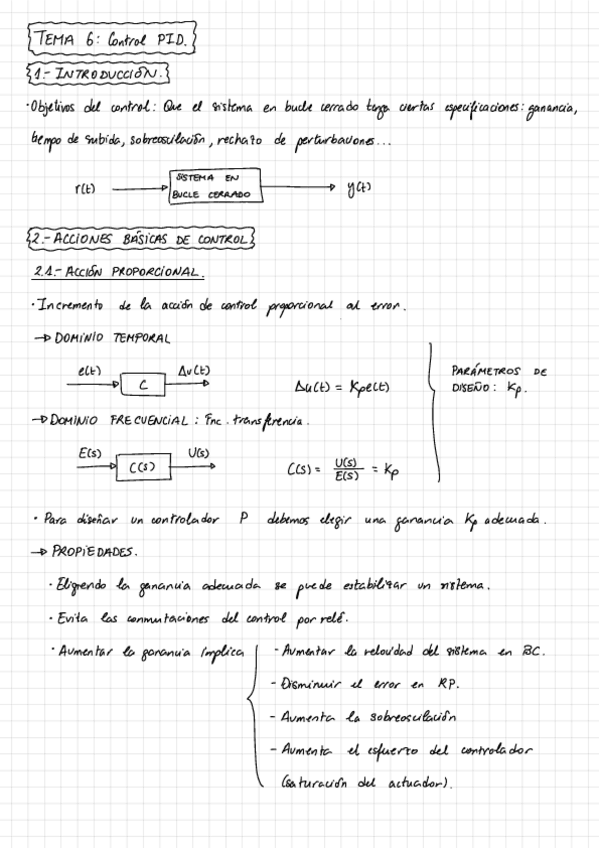 TEMA 6: Control PID.
1.- INTRODUCCIÓN.
· Objetivos del control: Que el sistema en bucle cerrado tenga ciertas especificaciones: ganancia,
tiempo de subida, sobreoscilación, rechazo de perturbaciones...
r(t) SISTEMA EN BUCLE CERRADO y(t)
2.- ACCIONES BÁSICAS DE CONTROL
2.1.- ACCIÓN PROPORCIONAL.
· Incremento de la acción de control proporcional al error.
→ DOMINIO TEMPORAL
e(t) C Δu(t) Δu(t) = Kp e(t)
PARÁMETROS DE
DISEÑO: Kp.
→ DOMINIO FRECUENCIAL: Fnc. transferencia.
E(s) C(s) U(s) C(s) = U(s)/E(s) = Kp
· Para diseñar un controlador P debemos elegir una ganancia Kp adecuada.
→ PROPIEDADES.
· Eligiendo la ganancia adecuada se puede estabilizar un sistema.
· Evita las conmutaciones del control por relé.
· Aumentar la ganancia implica
- Aumentar la velocidad del sistema en BC.
- Disminuir el error en RP.
- Aumenta la sobreoscilación
- Aumenta el esfuerzo del controlador
(saturación del actuador).